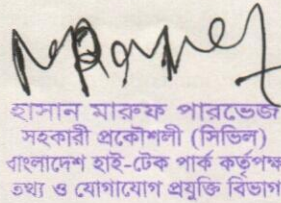 হাসান মারুফ পারভেজ
সহকারী প্রকৌশলী (সিভিল)
বাংলাদেশ হাই-টেক পার্ক কর্তৃপক্ষ
তথ্য ও যোগাযোগ প্রযুক্তি বিভাগ